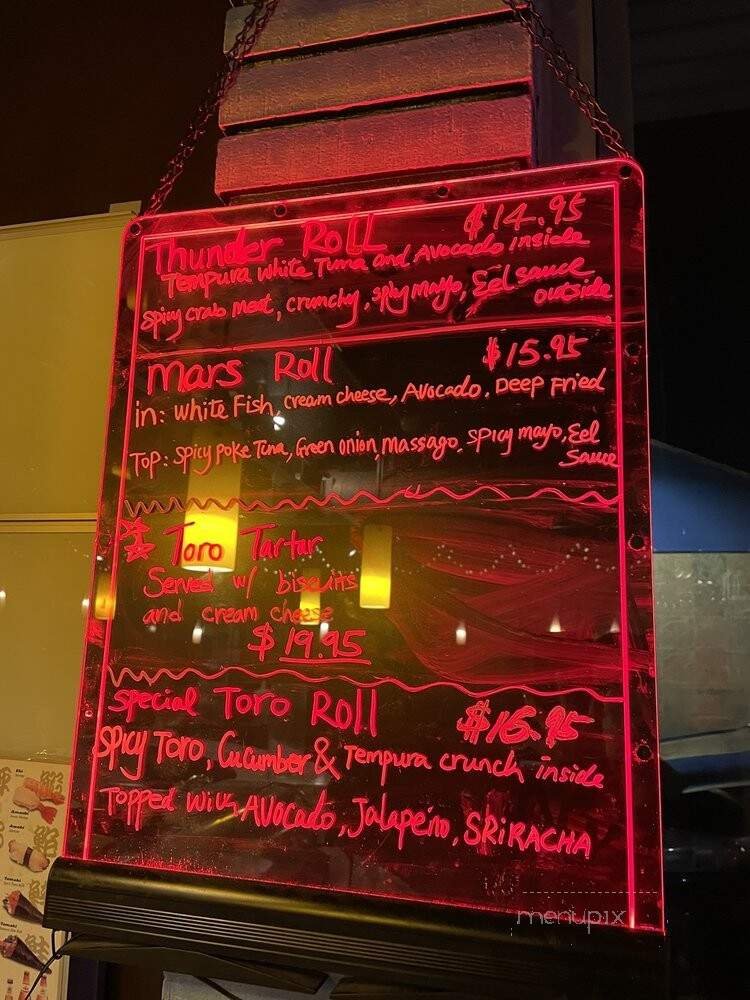 Thunder Roll $14.95
Tempura white Tuna and Avocado inside
Spicy crab meat, crunchy, spicy mayo, Eel sauce
outside
Mars Roll $15.95
in: White Fish, cream cheese, Avocado. Deep Fried
Top: Spicy poke Tuna, Green onion, Massago, Spicy mayo, Eel
Sauce
Toro Tartar
Served w/ biscuits
and cream cheese
$19.95
Special Toro Roll $16.95
Spicy Toro, Cucumber & Tempura crunch inside
Topped with Avocado, Jalapeño, SRiRACHA
menupix